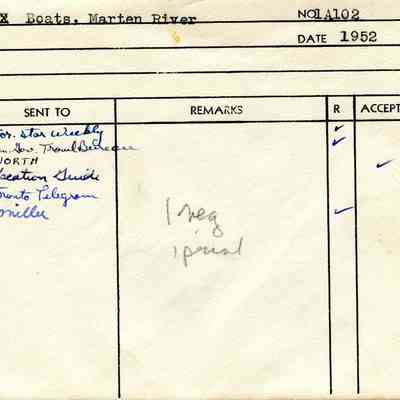 X Boats, Marten River NO 1A102
DATE 1952
SENT TO REMARKS R ACCEPT
or. Star Weekly ✓
n. Gov. Travel Bureau ✓
NORTH ✓
acation Guide
ronto Telegram
miller ✓
1 neg
1 print